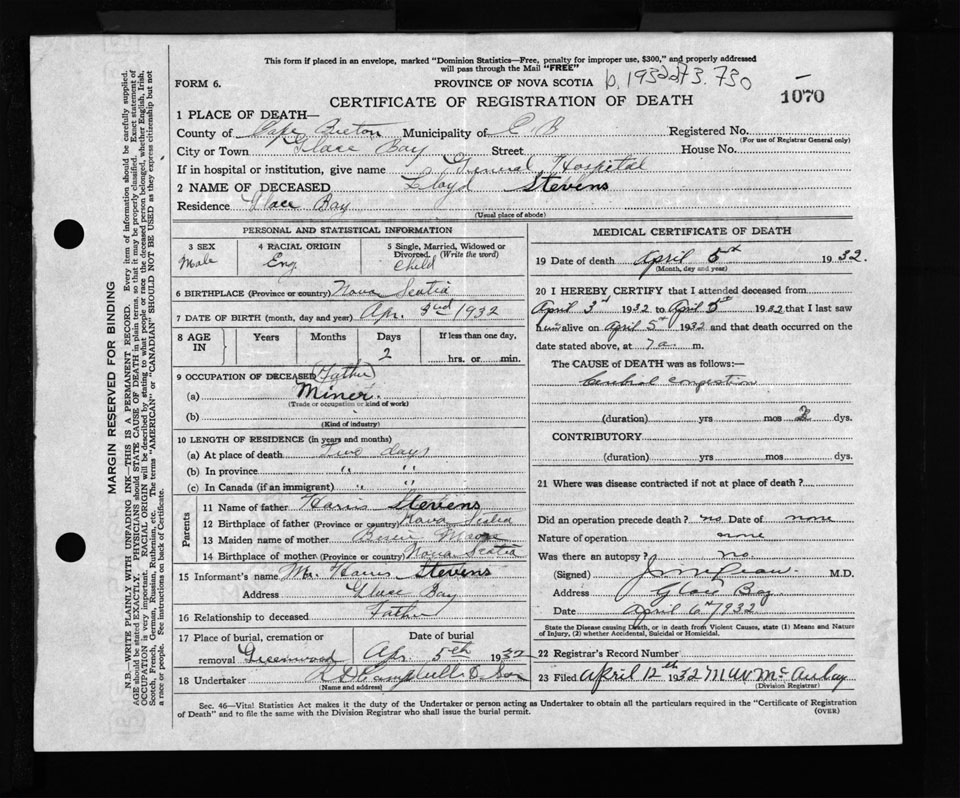 This form if placed in an envelope, marked "Dominion Statistics—Free, penalty for improper use, $300," and properly addressed
will pass through the Mail "FREE"
FORM 6.
PROVINCE OF NOVA SCOTIA
1070
CERTIFICATE OF REGISTRATION OF DEATH
1 PLACE OF DEATH—
County of Cape Breton Municipality of C B Registered No.
(For use of Registrar General only)
City or Town Glace Bay Street House No.
If in hospital or institution, give name General Hospital
2 NAME OF DECEASED Lloyd Stevens
Residence Glace Bay
(Usual place of abode)
PERSONAL AND STATISTICAL INFORMATION
3 SEX
Male
4 RACIAL ORIGIN
Eng
5 Single, Married, Widowed or
Divorced. (Write the word)
Child
6 BIRTHPLACE (Province or country) Nova Scotia
7 DATE OF BIRTH (month, day and year) Apr. 3rd 1932
8 AGE
IN
Years
Months
Days
2
If less than one day,
hrs. or min.
9 OCCUPATION OF DECEASED (Father)
(a) Miner.
(Trade or occupation or kind of work)
(b)
(Kind of industry)
10 LENGTH OF RESIDENCE (in years and months)
(a) At place of death Two days
(b) In province " "
(c) In Canada (if an immigrant) " "
Parents
11 Name of father Harris Stevens
12 Birthplace of father (Province or country) Nova Scotia
13 Maiden name of mother Bessie Moore
14 Birthplace of mother (Province or country) Nova Scotia
15 Informant's name Mr. Harris Stevens
Address Glace Bay
16 Relationship to deceased Father
17 Place of burial, cremation or
removal Greenwood
Date of burial
Apr. 5th 1932
18 Undertaker Campbell & Son
(Name and address)
MEDICAL CERTIFICATE OF DEATH
19 Date of death April 5th 1932.
(Month, day and year)
20 I HEREBY CERTIFY that I attended deceased from
April 3rd 1932 to April 5th 1932 that I last saw
him alive on April 5th 1932 and that death occurred on the
date stated above, at 7 a. m.
The CAUSE of DEATH was as follows:—
congestion
(duration) yrs mos 2 dys.
CONTRIBUTORY
(duration) yrs mos dys.
21 Where was disease contracted if not at place of death?
Did an operation precede death? no Date of none
Nature of operation none
Was there an autopsy? no.
(Signed) M.D.
Address Glace Bay
Date April 6th 1932
State the Disease causing Death, or in death from Violent Causes, state (1) Means and Nature
of Injury, (2) whether Accidental, Suicidal or Homicidal.
22 Registrar's Record Number
23 Filed April 12th 1932 McAulay
(Division Registrar)
Sec. 46—Vital Statistics Act makes it the duty of the Undertaker or person acting as Undertaker to obtain all the particulars required in the "Certificate of Registration
of Death" and to file the same with the Division Registrar who shall issue the burial permit.
(OVER)
MARGIN RESERVED FOR BINDING
N.B.—WRITE PLAINLY WITH UNFADING INK—THIS IS A PERMANENT RECORD. Every item of information should be carefully supplied.
AGE should be stated EXACTLY. PHYSICIANS should STATE CAUSE OF DEATH in plain terms, so that it may be properly classified. Exact statement of
OCCUPATION is very important. RACIAL ORIGIN will be described by stating to what people or race the deceased person belonged, whether English, Irish,
Scotch, French, German, Russian, Ruthenian, etc. The terms "AMERICAN" or "CANADIAN" SHOULD NOT BE USED as they express citizenship but not
a race or people. See instructions on back of Certificate.